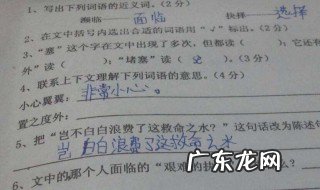 1、写出下列词语的近义词。(2分)
濒临—— 面临 抉择—— 选择
2、在文中括号内选出合适的词语用“√”标出。(2分)
3、“塞”这个字在文中出现了多次，但都读（ ）；它还有
外”读（ ）；“堵塞”读（ ）。（3分）
4、联系上下文理解下列词语的意思。(4分)
小心翼翼： 非常小心。
置之度外：
5、把“岂不白白浪费了这救命之水？”这句话改为陈述句
岂 白白浪费了这救命之水
6、文中的那个人面临的“艰难的抉
广东龙网